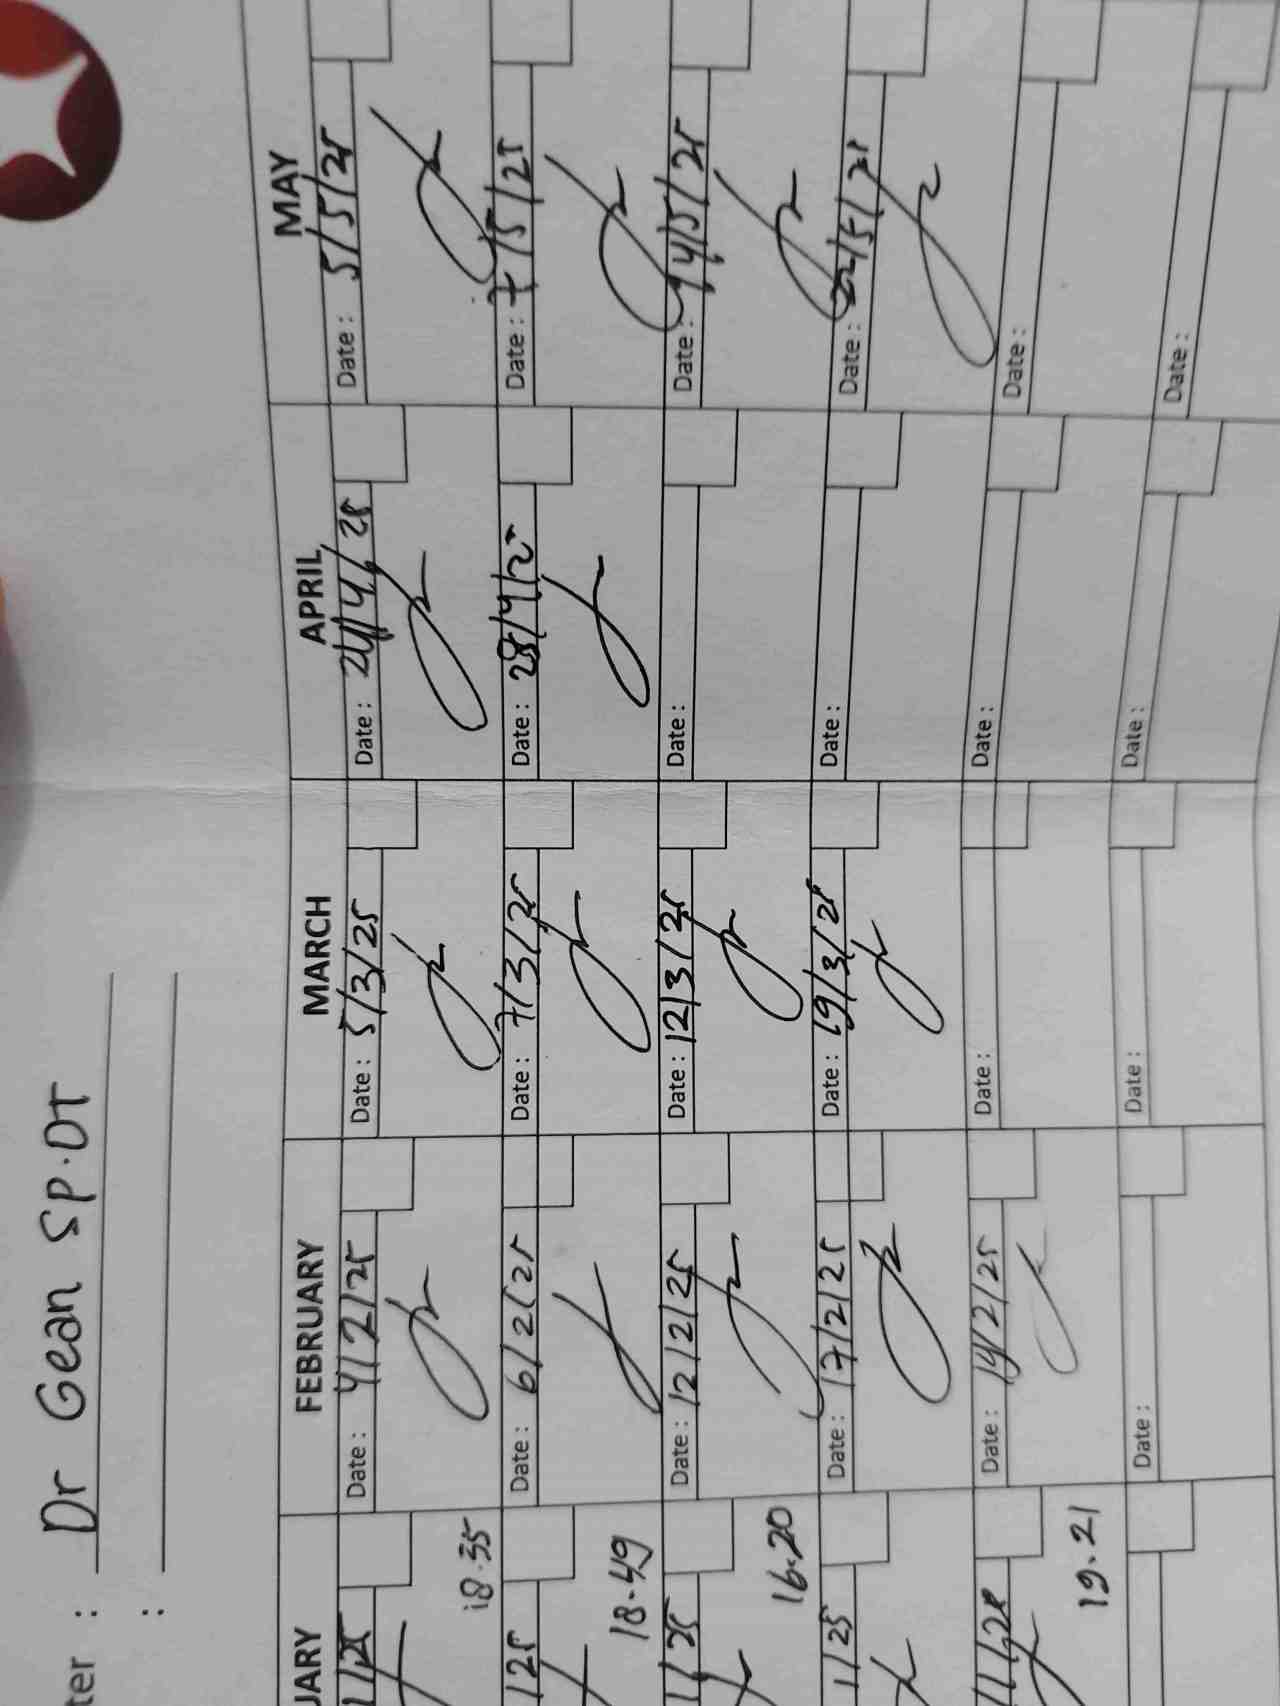 ter : Dr Gean SP.OT
:
UARY FEBRUARY MARCH APRIL MAY
1/25 Date : 4/2/25 Date : 5/3/25 Date : 24/4/25 Date : 5/5/25
18.35
1/25 Date : 6/2/25 Date : 7/3/25 Date : 28/4/25 Date : 7/5/25
18-49
1/25 Date : 12/2/25 Date : 12/3/25 Date : Date : 14/5/25
16.20
1/25 Date : 17/2/25 Date : 19/3/25 Date : Date : 22/5/25
Date : 19/2/25 Date : Date : Date :
19.21
Date : Date : Date : Date :